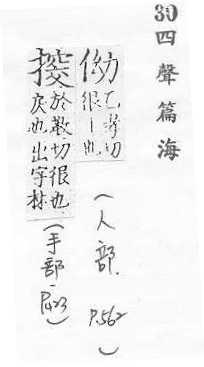 30 四聲篇海
㑃 乙孝切
很丨也
(人部. P.562)
於敎切很也
戾也出字林
(手部. P.423)